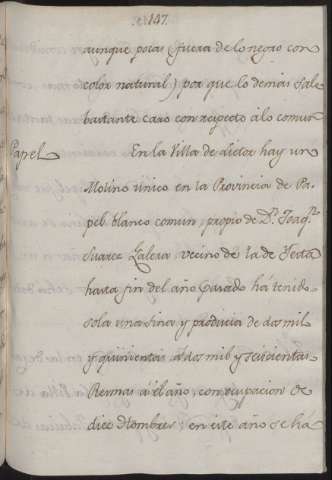 147.
aunque pocas (fuera de lo negro con
color natural) por que lo demas sale
bastante caro con respecto a lo comun
Papel
En la Villa de Lietor hay un
Molino unico en la Provincia de Pa-
pel blanco comun, propio de Dn. Joaqn.
Suarez Zalera vecino de la de Yeste
hasta fin del año pasado há tenido
sola una tina y producia de dos mil
y quinientas a dos mil y seiscientas
Resmas ál año, con ocupacion de
diez Hombres: en este año se há